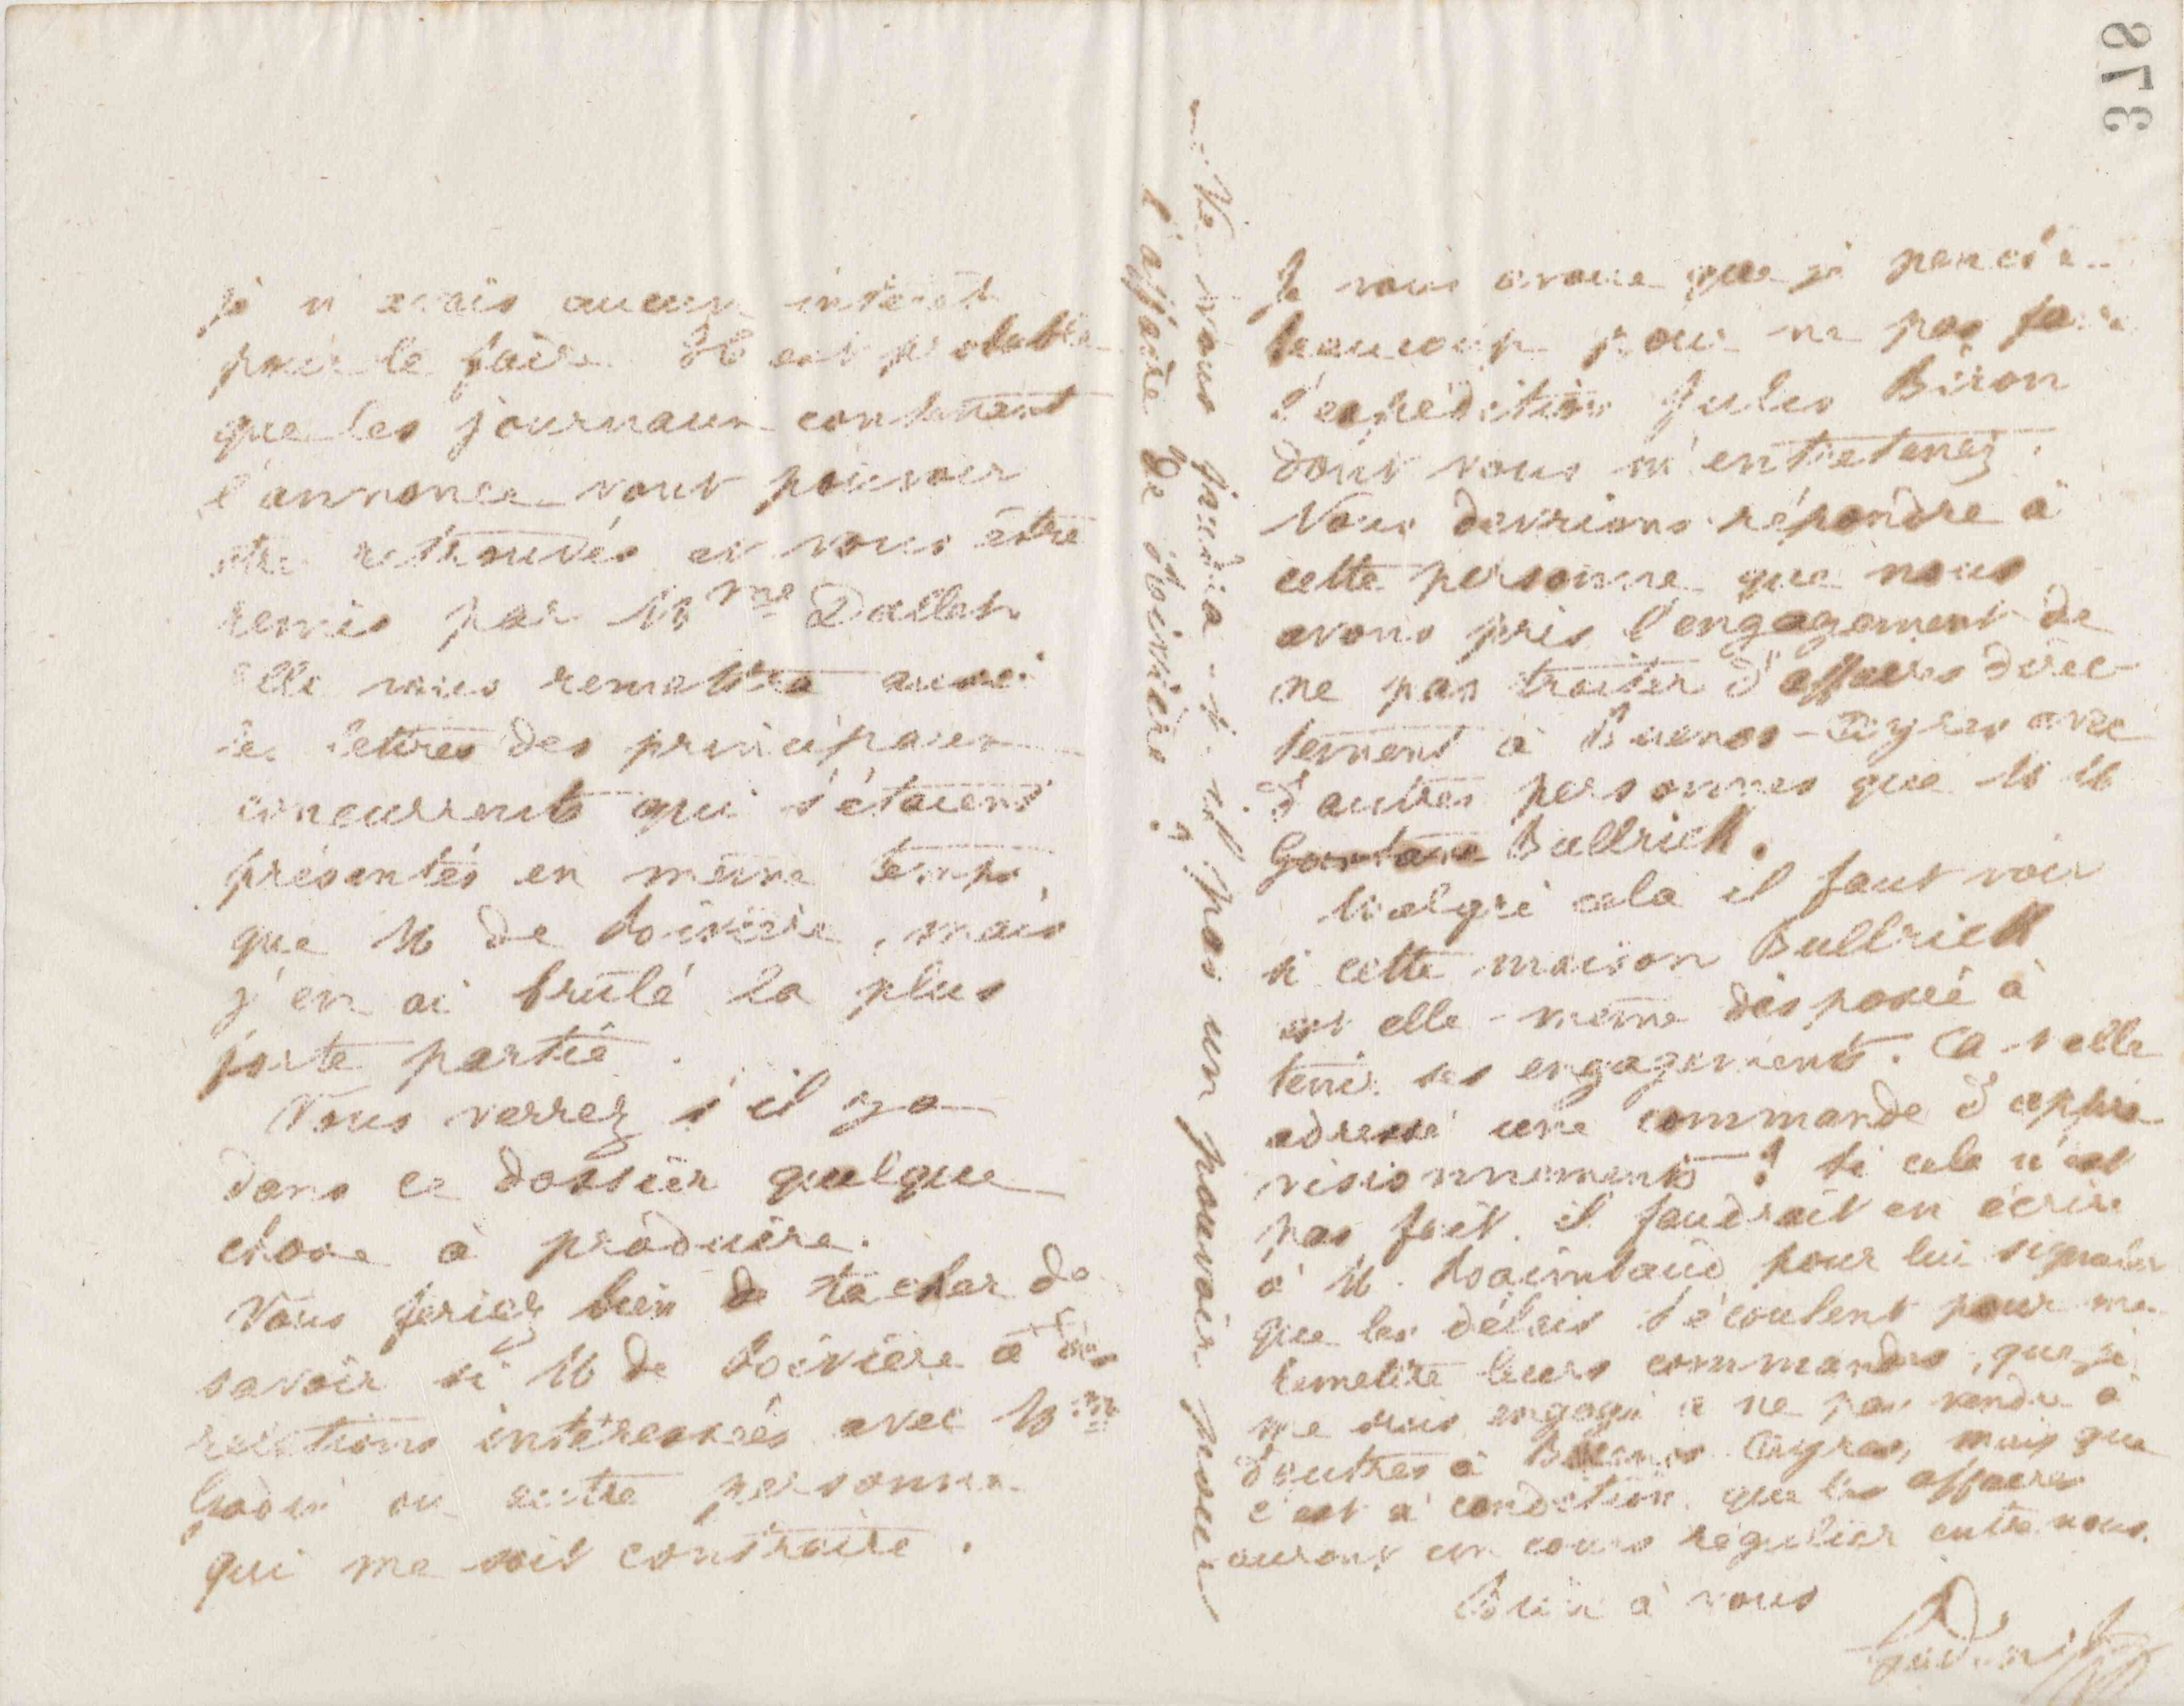 je n'avais aucun intérêt
pour le faire. Il est probable
que les journaux contenant
l'annonce vont pouvoir
être retrouvés et vous être
remis par Mme Dallet
Elle vous remettra aussi
les lettres des principaux
concurrents qui s'étaient
présentés en même temps
que M de Boivière, mais
j'en ai brûlé la plus
forte partie.
Vous verrez s'il y a
dans ce dossier quelque
chose à produire.
Vous feriez bien de tacher de
savoir si M de Boivière a des
relations intéressées avec Mme
Godin ou autre personne
qui me soit contraire.
Ne vous faudra-t-il pas un pouvoir pour
l'affaire de Boivière ?
378
Je vous avoue que je penche
beaucoup pour ne pas faire
l'expédition Jules Biron
dont vous m'entretenez.
Nous devrions répondre à
cette personne que nous
avons pris l'engagement de
ne pas traiter d'affaires direc-
tement à Buenos-Ayres avec
d'autres personnes que MM
Bullrich.
Malgré cela il faut voir
si cette maison Bullrich
est elle-même disposée à
tenir ses engagements. A-t-elle
adressé une commande d'appro
visionnements ? Si cela n'est
pas fait, il faudrait en écrire
à M. Raimbaud pour lui signaler
que les délais s'écoulent pour me
remettre leurs commandes, que je
me suis engagé à ne pas vendre à
d'autres à Buenos Ayres, mais que
c'est à condition que les affaires
auront un cours régulier entre nous.
Bien à vous
Godin